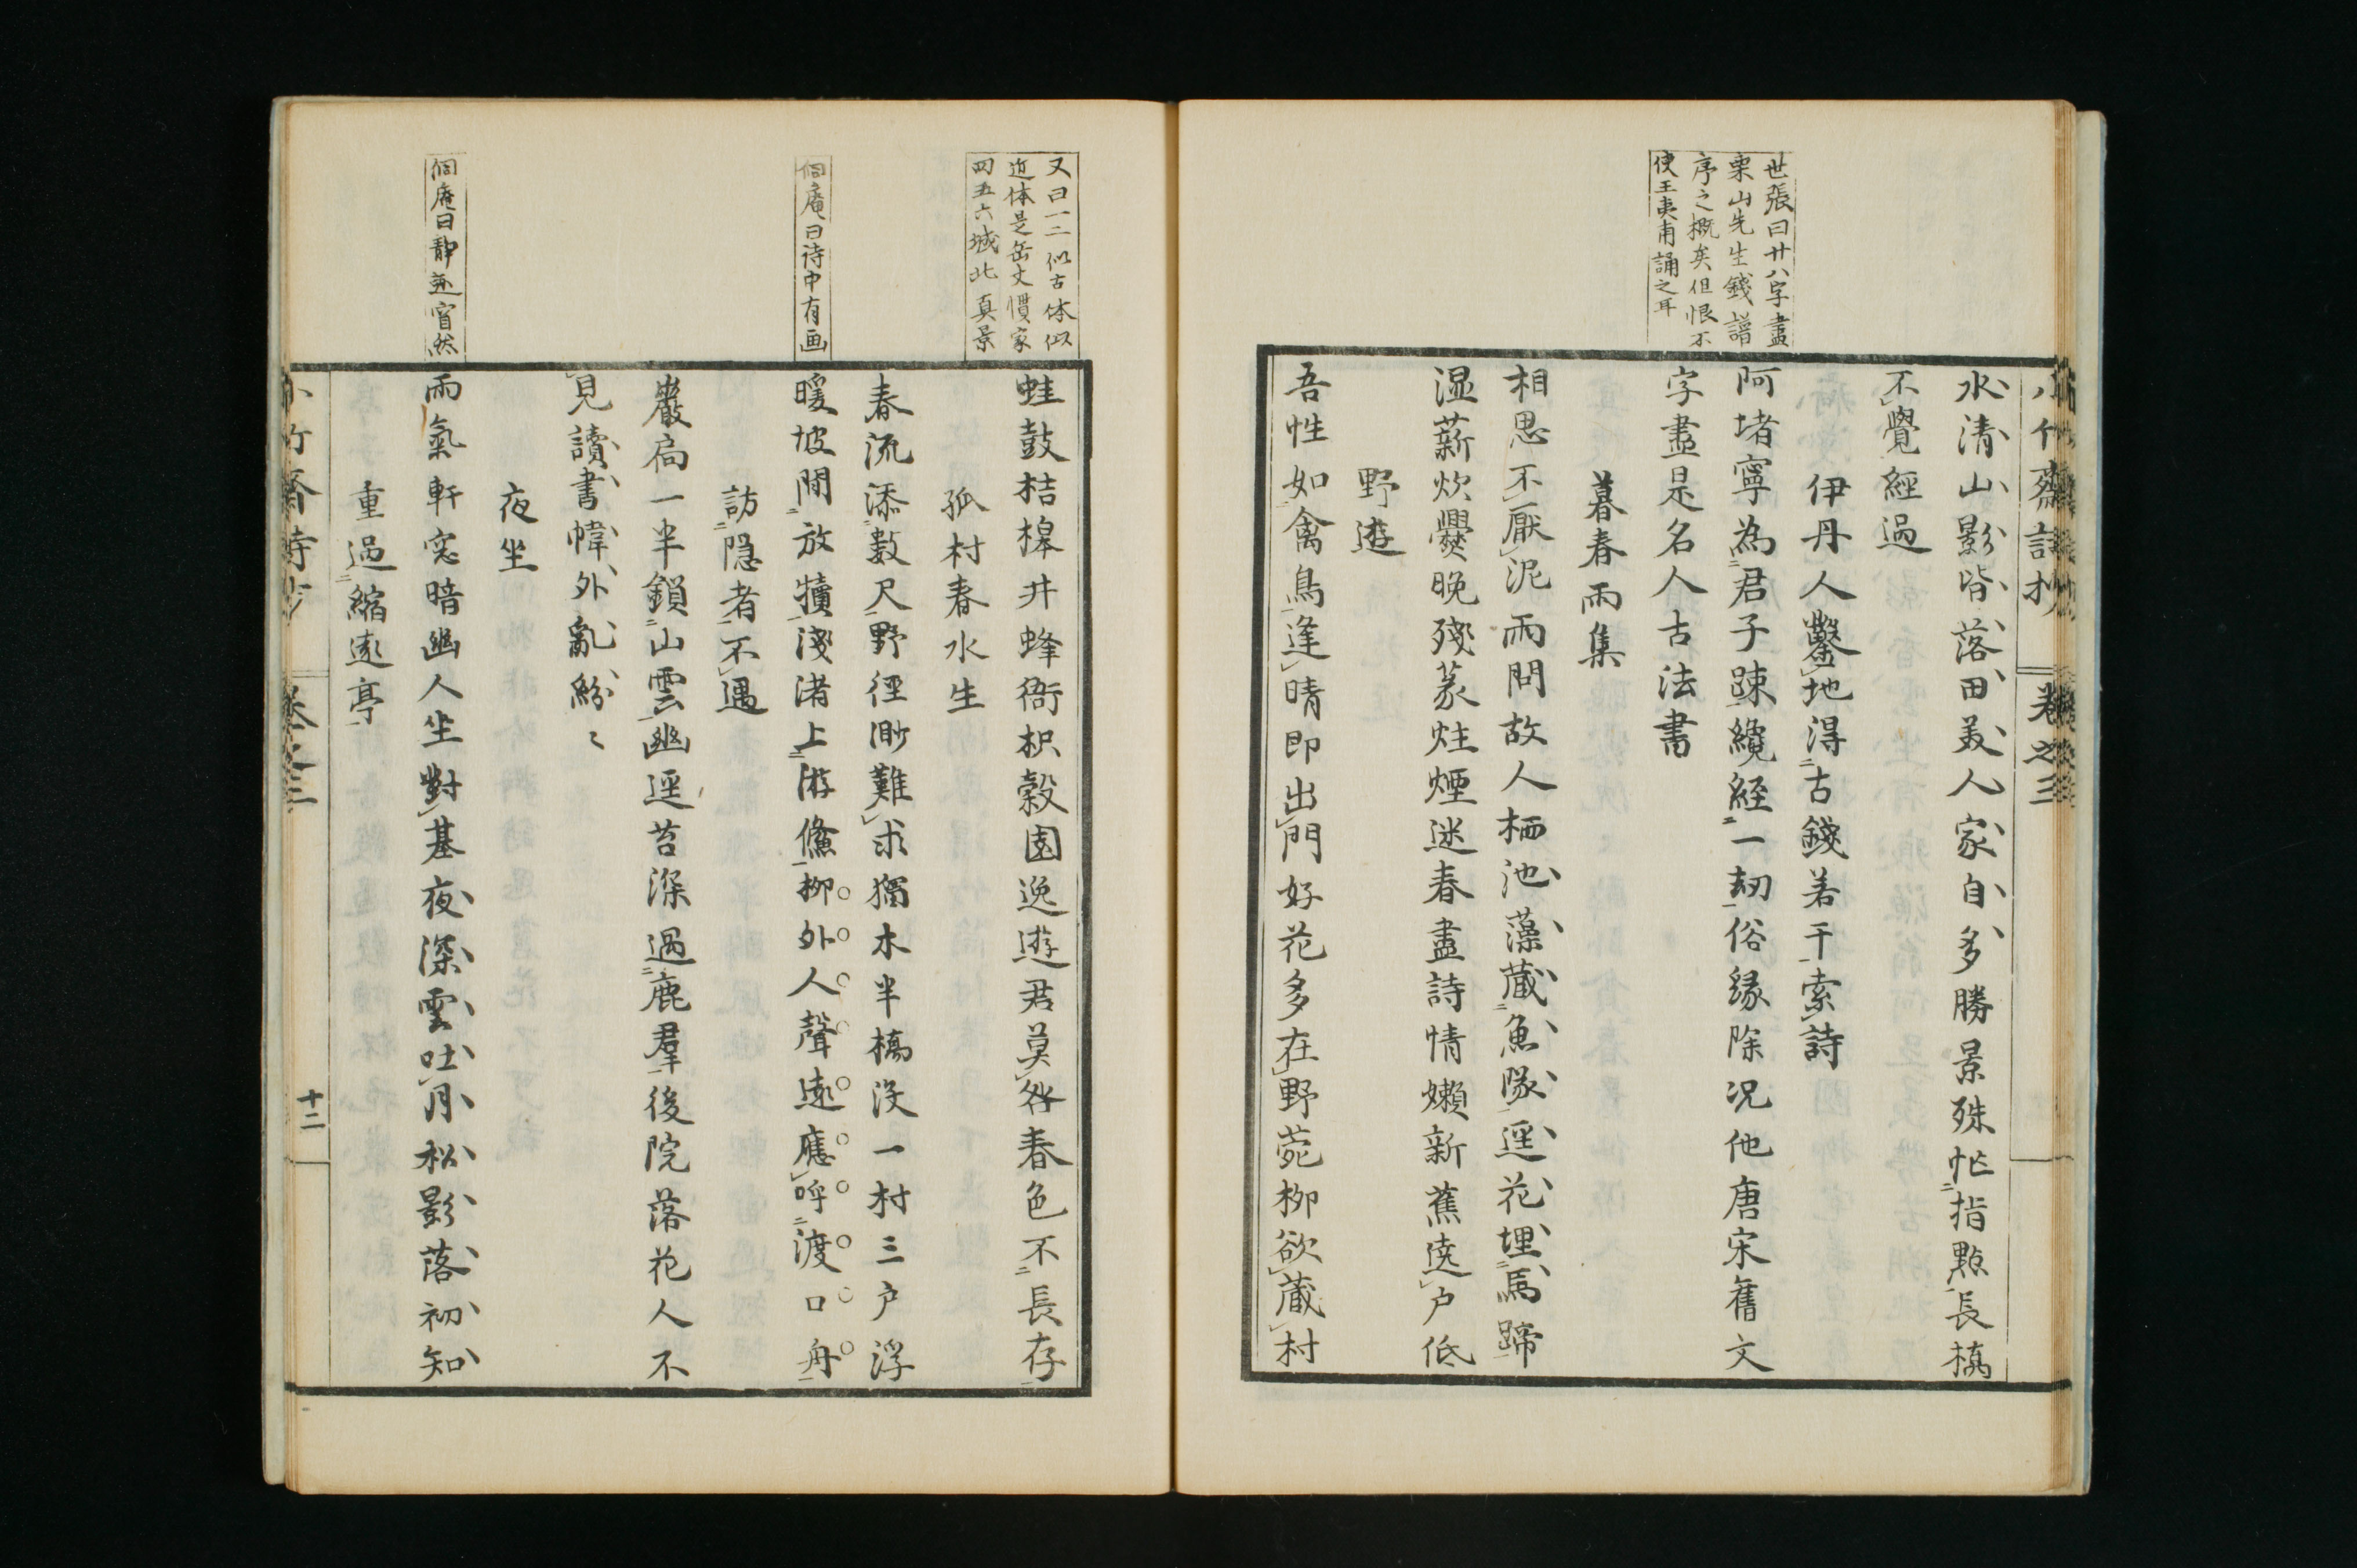 小竹齋詩抄 卷之三
世張曰廿八字盡
栗山先生錢譜
序之概矣但恨不
使王夷甫誦之耳
水清山影皆落田美人家自多勝景殊忙指點長橋
不覺經過
伊丹人鑿地得古錢若干索詩
阿堵寧為君子疎纔經一劫俗緣除況他唐宋舊文
字盡是名人古法書
暮春雨集
相思不厭泥雨問故人栖池藻蔵魚隊逕花埋馬蹄
湿薪炊爨晚殘篆炷煙迷春盡詩情嬾新蕉遶戶低
野遊
吾性如禽鳥逢晴即出門好花多在野菀柳欲蔵村
又曰一二似古体似
近体是岳丈慣家
四五六城北真景
蛙鼓桔槔井蜂衙枳殼園逸遊君莫咎春色不長存
孤村春水生
春流添數尺野徑渺難求獨木半橋没一村三戶浮
侗庵曰詩中有画
暖坡閒放犢淺渚上游鯈柳外人聲遠應呼渡口舟
訪隱者不遇
巖扃一半鎖山雲幽逕苔深過鹿羣後院落花人不
見讀書幃外亂紛〻
夜坐
侗庵曰靜迹窅然
雨氣軒窓暗幽人坐對基夜深雲吐月松影落初知
重過縮遠亭
小竹齋詩抄 卷之三 十二